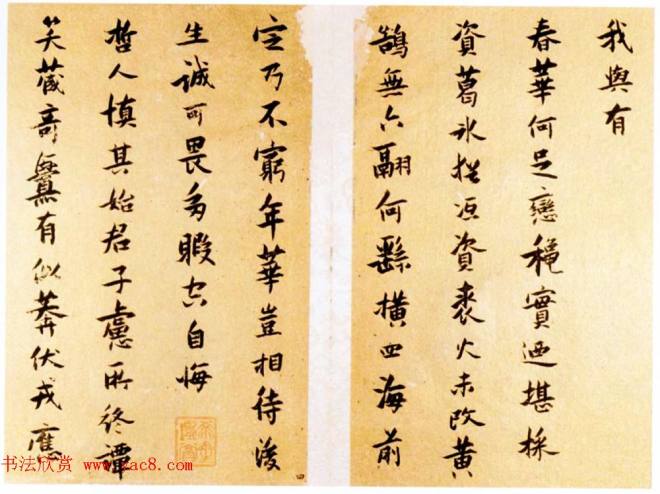 我與有
春華何足戀穐實迺堪採
資葛冰猶沍資裘火未改黃
鵠無六翮何繇橫四海前
定乃不窮年華豈相待後
生誠可畏多暇空自悔
哲人慎其始君子慮所終譚
笑藏奇釁有似莽伏戎應
四
书法欣赏 www.yac8.com